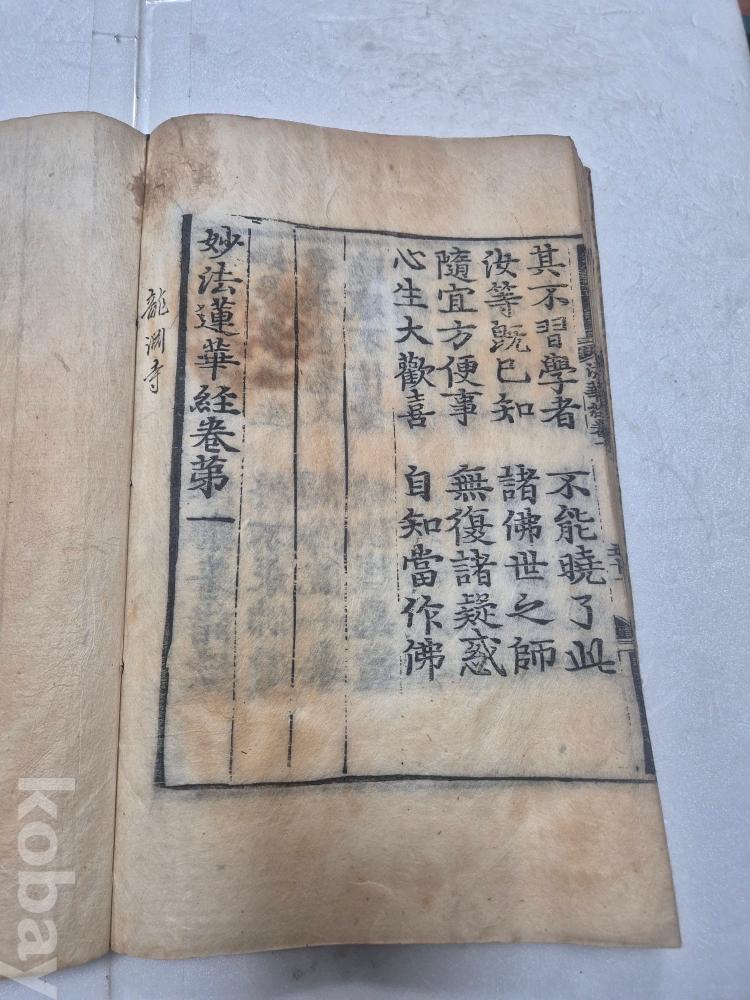 其不習學者 不能曉了此
汝等既已知 諸佛世之師
隨宜方便事 無復諸疑惑
心生大歡喜 自知當作佛
妙法蓮華經卷第一
龍淵寺
kobay